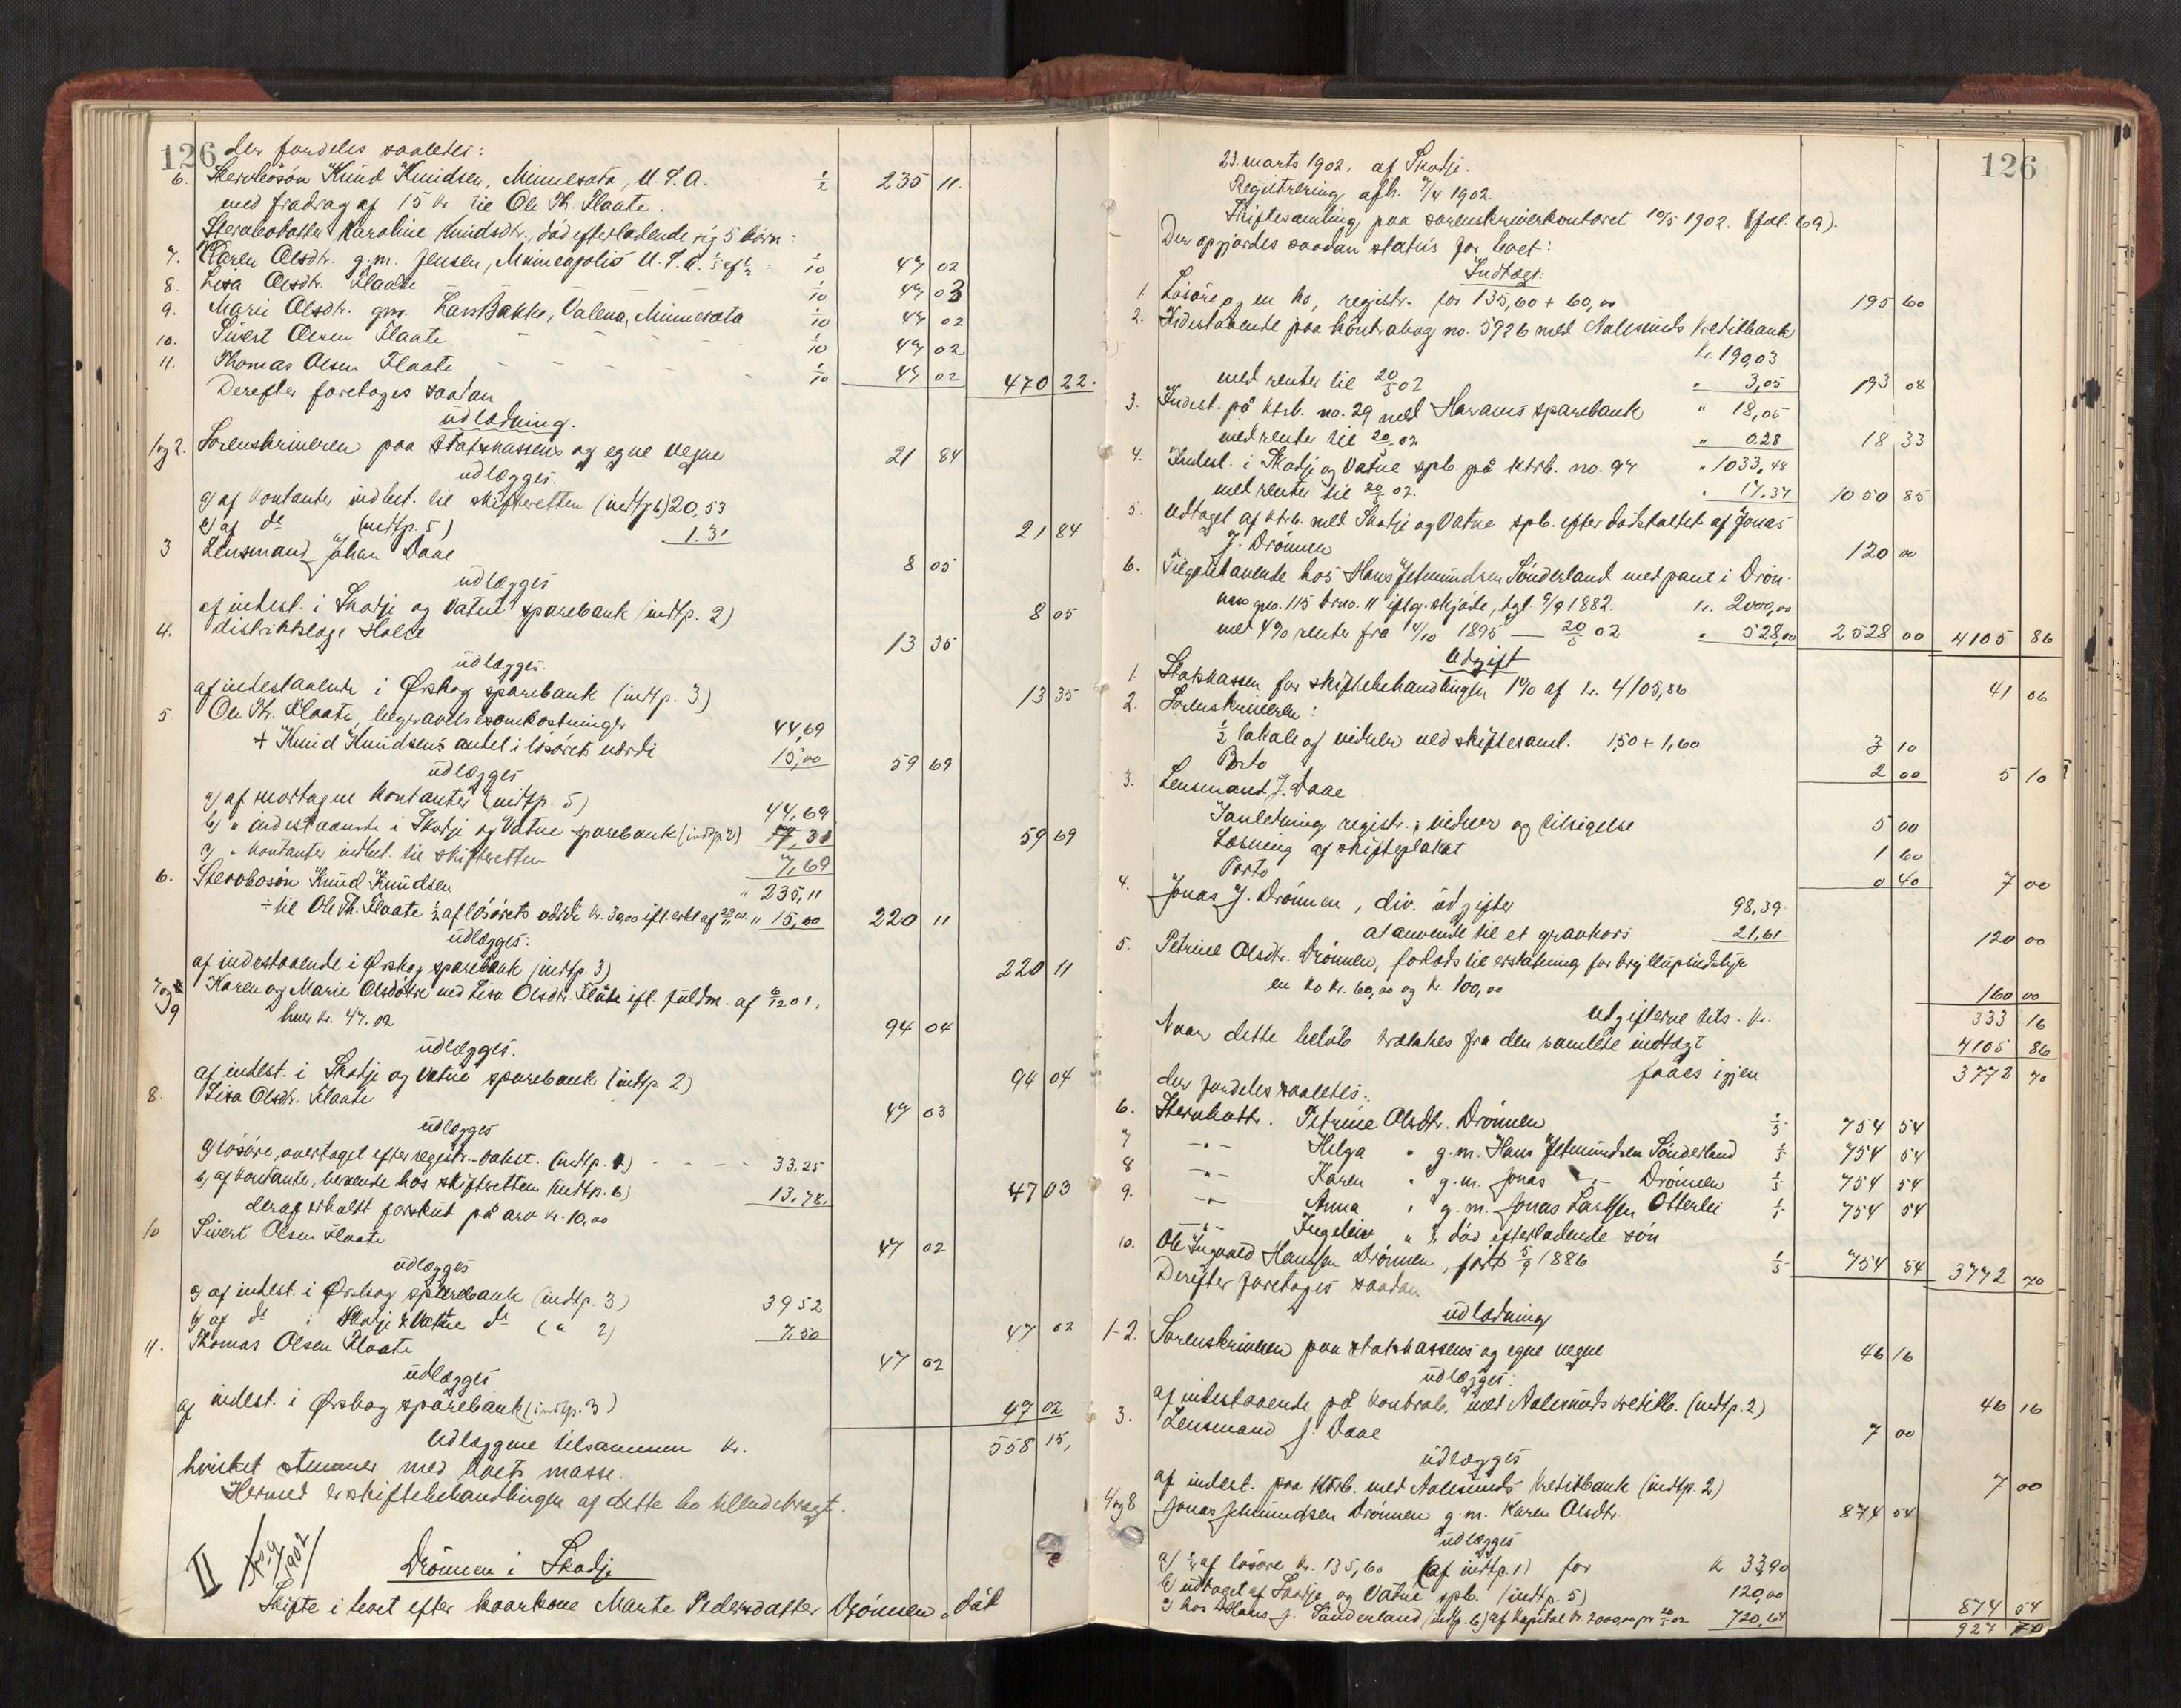 126
der fordeles saaledes:
6. Stervbosøn Knud Knudsen, Minnesota, U.S.A. 1/2 235 11.
med fradrag af 15 kr. til Ole Th. Flaate.
Stervbodatter Karoline Knudsdtr., död efterladende sig 5 börn:
7. Karen Olsdtr. g.m. Jensen, Minneapolis U.S.A. 1/5 af 1/2 = 1/10 47 02
8. Lisa Olsdtr. Flaate 1/10 47 03
9. Marie Olsdtr. gm. Lars Bakke, Minnesota 1/10 47 02
10. Sivert Olsen Flaate 1/10 47 02
11. Thomas Olsen Flaate 1/10 47 02 470 22.
Derefter foretages saadan
udlodning.
1og2. Sorenskriveren paa statskassens og egne vegne 21 84
udlægges.
a) af kontanter indbet. til skifteretten (indtp 6) 20,53
b) af do (indtp. 5) 1.31 21 84
3 Lensmand Johan Daae 8 05
udlægges
af indest. i Skodje og Vatne sparebank (indtp. 2) 8 05
4. distriktslæge Holst 13 35
udlægges.
af indestaaende i Ørskog sparebank (indtp. 3) 13 35
5. Ole Th. Flaate, begravelsesomkostninger 44,69
+ Knud Knudsens andel i lösörets værdi 15,00 59 69
udlægges
a) af mortagne kontanter (indtp. 5) 44,69
b) " indestaaende i Skodje og Vatne sparebank (indtp. 2) 7,31
c) " kontanter indbet. til skifteretten 7,69 59 69
6. Stervbosøn Knud Knudsen " 235,11
÷ til Ole Th. Flaate 1/2 af lösörets værdi kr. 30,00 ifl. erkl. af 29/11 01. " 15,00 220 11
udlægges.
af indestaaende i Ørskog sparebank (indtp. 3) 220 11
7 og 9 Karen og Marie Olsdötre ved Lisa Olsdtr. Flåte ifl. fuldm. af 6/12 01.
hver kr. 47.02 94 04
udlægges.
af indest. i Skodje og Vatne sparebank (indtp. 2) 94 04
8. Lisa Olsdtr. Flaate 47 03
udlægges
a) lösöre, overtaget efter registr.-takst. (indtp. 1) - - - 33.25
b) af kontanter, beroende hos skifteretten (indtp. 6) 13.78. 47 03
deraf erholdt forskud på arv kr. 10,00
10 Sivert Olsen Flaate 47 02
udlægges
a) af indest. i Ørskog sparebank (indtp. 3) 39 52
b) af do i Skodje & Vatne do ( " 2) 7,50 47 02
11. Thomas Olsen Flaate 47 02
udlægges
af indest. i Ørskog sparebank (indtp. 3) 47 02
Udlæggene tilsammen kr. 558 15,
hvilket stemmer med boets masse.
Hermed er skiftebehandlingen af dette bo tilendebragt.
II 1902
Drönnen i Skodje
Skifte i boet efter kaarkone Marte Pedersdatter Drönnen, död
126
23. marts 1902, af Skodje.
Registrering afh. 7/4 1902.
Skiftesamling paa sorenskriverkontoret 10/5 1902. (fol. 69).
Der opgjordes saadan status for boet:
Indtægt:
1. Lösöre og en ko, registr. for 135,60 + 60,00 195 60
2. Indestaaende paa kontrabog no. 5926 med Aalesunds kreditbank
kr. 190,03
med renter til 20/5 02 " 3,05 193 08
3. Indest. på ktrb. no. 29 med Harams sparebank " 18,05
med renter til 20/5 02 " 0.28 18 33
4. Indest. i Skodje og Vatne spb. på ktrb. no. 97 " 1033,48
med renter til 20/5 02. " 17.37 1050 85
5. Udtaget af ktrb. med Skodje og Vatne spb. efter dödsfaldet af Jonas
J. Drönnen 120 00
6. Tilgodehavende hos Hans Jetmundsen Sönderland med pant i Drön-
nen gno. 115 brno. 11 iflg. skjöde, tgl. 9/9 1882. kr. 2000,00
med 4% renter fra 14/10 1895 — 20/5 02 " 528,00 2528 00 4105 86
Udgift
1. Statskassen for skiftebehandlingen 1% af kr. 4105,86 41 06
2. Sorenskriveren:
1/2 lokale og vidner ved skiftesaml. 1,50 + 1,60 3 10
Porto 2 00 5 10
3. Lensmand J. Daae
Ianledning registr.; vidner og tilsigelse 5 00
Læsning af skifteplakat 1 60
Porto 0 40 7 00
4. Jonas J. Drönnen, div. udgifter 98,39
at anvende til et gravkors 21,61 120 00
5. Petrine Olsdtr. Drönnen, forlods til erstatning for bryllupsudstyr
en ko kr. 60,00 og kr. 100,00 160 00
Udgifterne tils. kr. 333 16
Naar dette belöb trækkes fra den samlede indtægt 4105 86
faaes igjen 3772 70
der fordeles saaledes:
6. Stervbodtr. Petrine Olsdtr. Drönnen 1/5 754 54
7 -"- Helga " g.m. Hans Jetmundsen Sönderland 1/5 754 54
8 -"- Karen " g.m. Jonas -"- Drönnen 1/5 754 54
9. -"- Anna " g.m. Jonas Larssen Otterlei 1/5 754 54
-"- Ingeleiv " er död efterladende sön
10. Ole Ingvald Hanssen Drönnen, födt 5/9 1886 1/5 754 54 3772 70
Derefter foretages saadan
udlodning
1-2. Sorenskriveren paa statskassens og egne vegne 46 16
udlægges:
af indestaaende på kontrab. med Aalesunds kreditb. (indtp. 2) 46 16
3. Lensmand J. Daae 7 00
udlægges
af indest. paa ktrb. med Aalesunds kreditbank (indtp. 2) 7 00
4og8 Jonas Jetmundsen Drönnen g.m. Karen Olsdtr. 874 54
udlægges
a) 1/4 af lösöre kr. 135,60 (af indtp. 1) for kr. 33,90
b) udtaget af Skodje og Vatne spb. (indtp. 5) 120,00
c) hos Hans J. Sönderland (indtp. 6) af kapital kr. 2000,00 pr 20/5 02 720,64 874 54
927 70